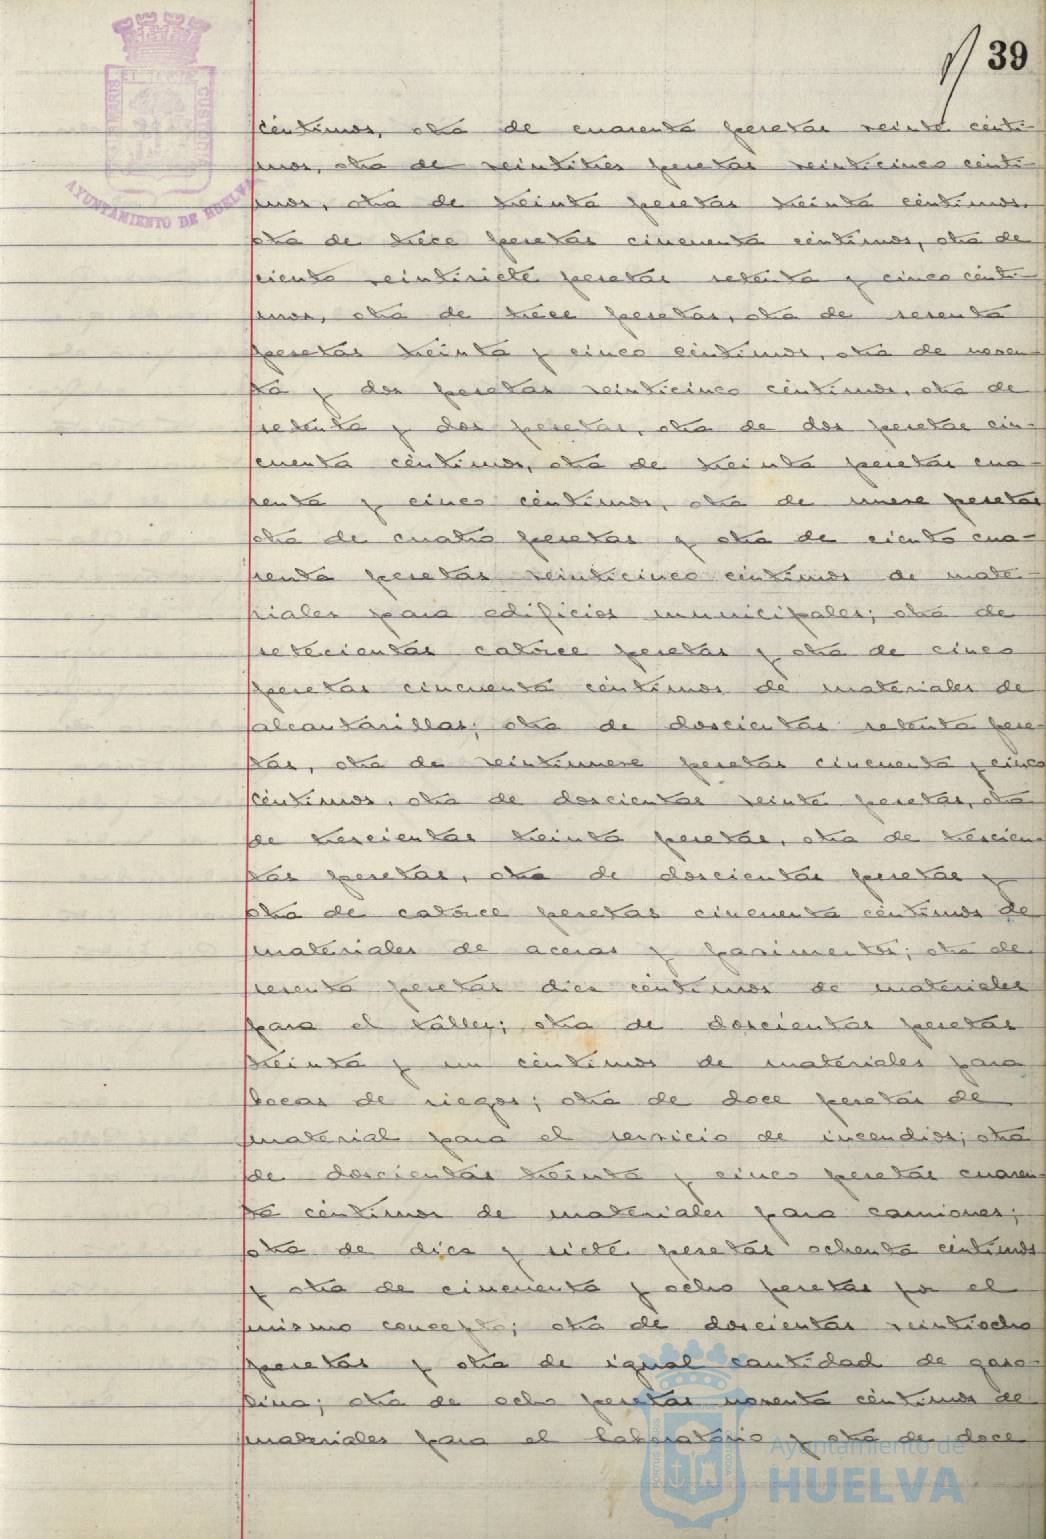 39
céntimos, otra de cuarenta pesetas veinte cénti-
mos, otra de veintitres pesetas veinticinco cénti-
mos, otra de treinta pesetas treinta céntimos,
otra de trece pesetas cincuenta céntimos, otra de
ciento veintisiete pesetas setenta y cinco cénti-
mos, otra de trece pesetas, otra de sesenta
pesetas treinta y cinco céntimos, otra de noven-
ta y dos pesetas veinticinco céntimos, otra de
setenta y dos pesetas, otra de dos pesetas cin-
cuenta céntimos, otra de treinta pesetas cua-
renta y cinco céntimos, otra de nueve pesetas
otra de cuatro pesetas y otra de ciento cua-
renta pesetas veinticinco céntimos de mate-
riales para edificios municipales; otra de
setecientas catorce pesetas y otra de cinco
pesetas cincuenta céntimos de materiales de
alcantarillas; otra de doscientas setenta pese-
tas, otra de veintinueve pesetas cincuenta y cinco
céntimos, otra de doscientas veinte pesetas, otra
de trescientas treinta pesetas, otra de trescien-
tas pesetas, otra de doscientas pesetas y
otra de catorce pesetas cincuenta céntimos de
materiales de aceras y pavimentos; otra de
sesenta pesetas diez céntimos de materiales
para el taller; otra de doscientas pesetas
treinta y un céntimos de materiales para
bocas de riegos; otra de doce pesetas de
material para el servicio de incendios; otra
de doscientas treinta y cinco pesetas cuaren-
ta céntimos de materiales para camiones;
otra de diez y siete pesetas ochenta céntimos
y otra de cincuenta y ocho pesetas por el
mismo concepto; otra de doscientas veintiocho
pesetas y otra de igual cantidad de gaso-
lina; otra de ocho pesetas noventa céntimos de
materiales para el laboratorio y otra de doce
AYUNTAMIENTO DE HUELVA
Ayuntamiento de
HUELVA